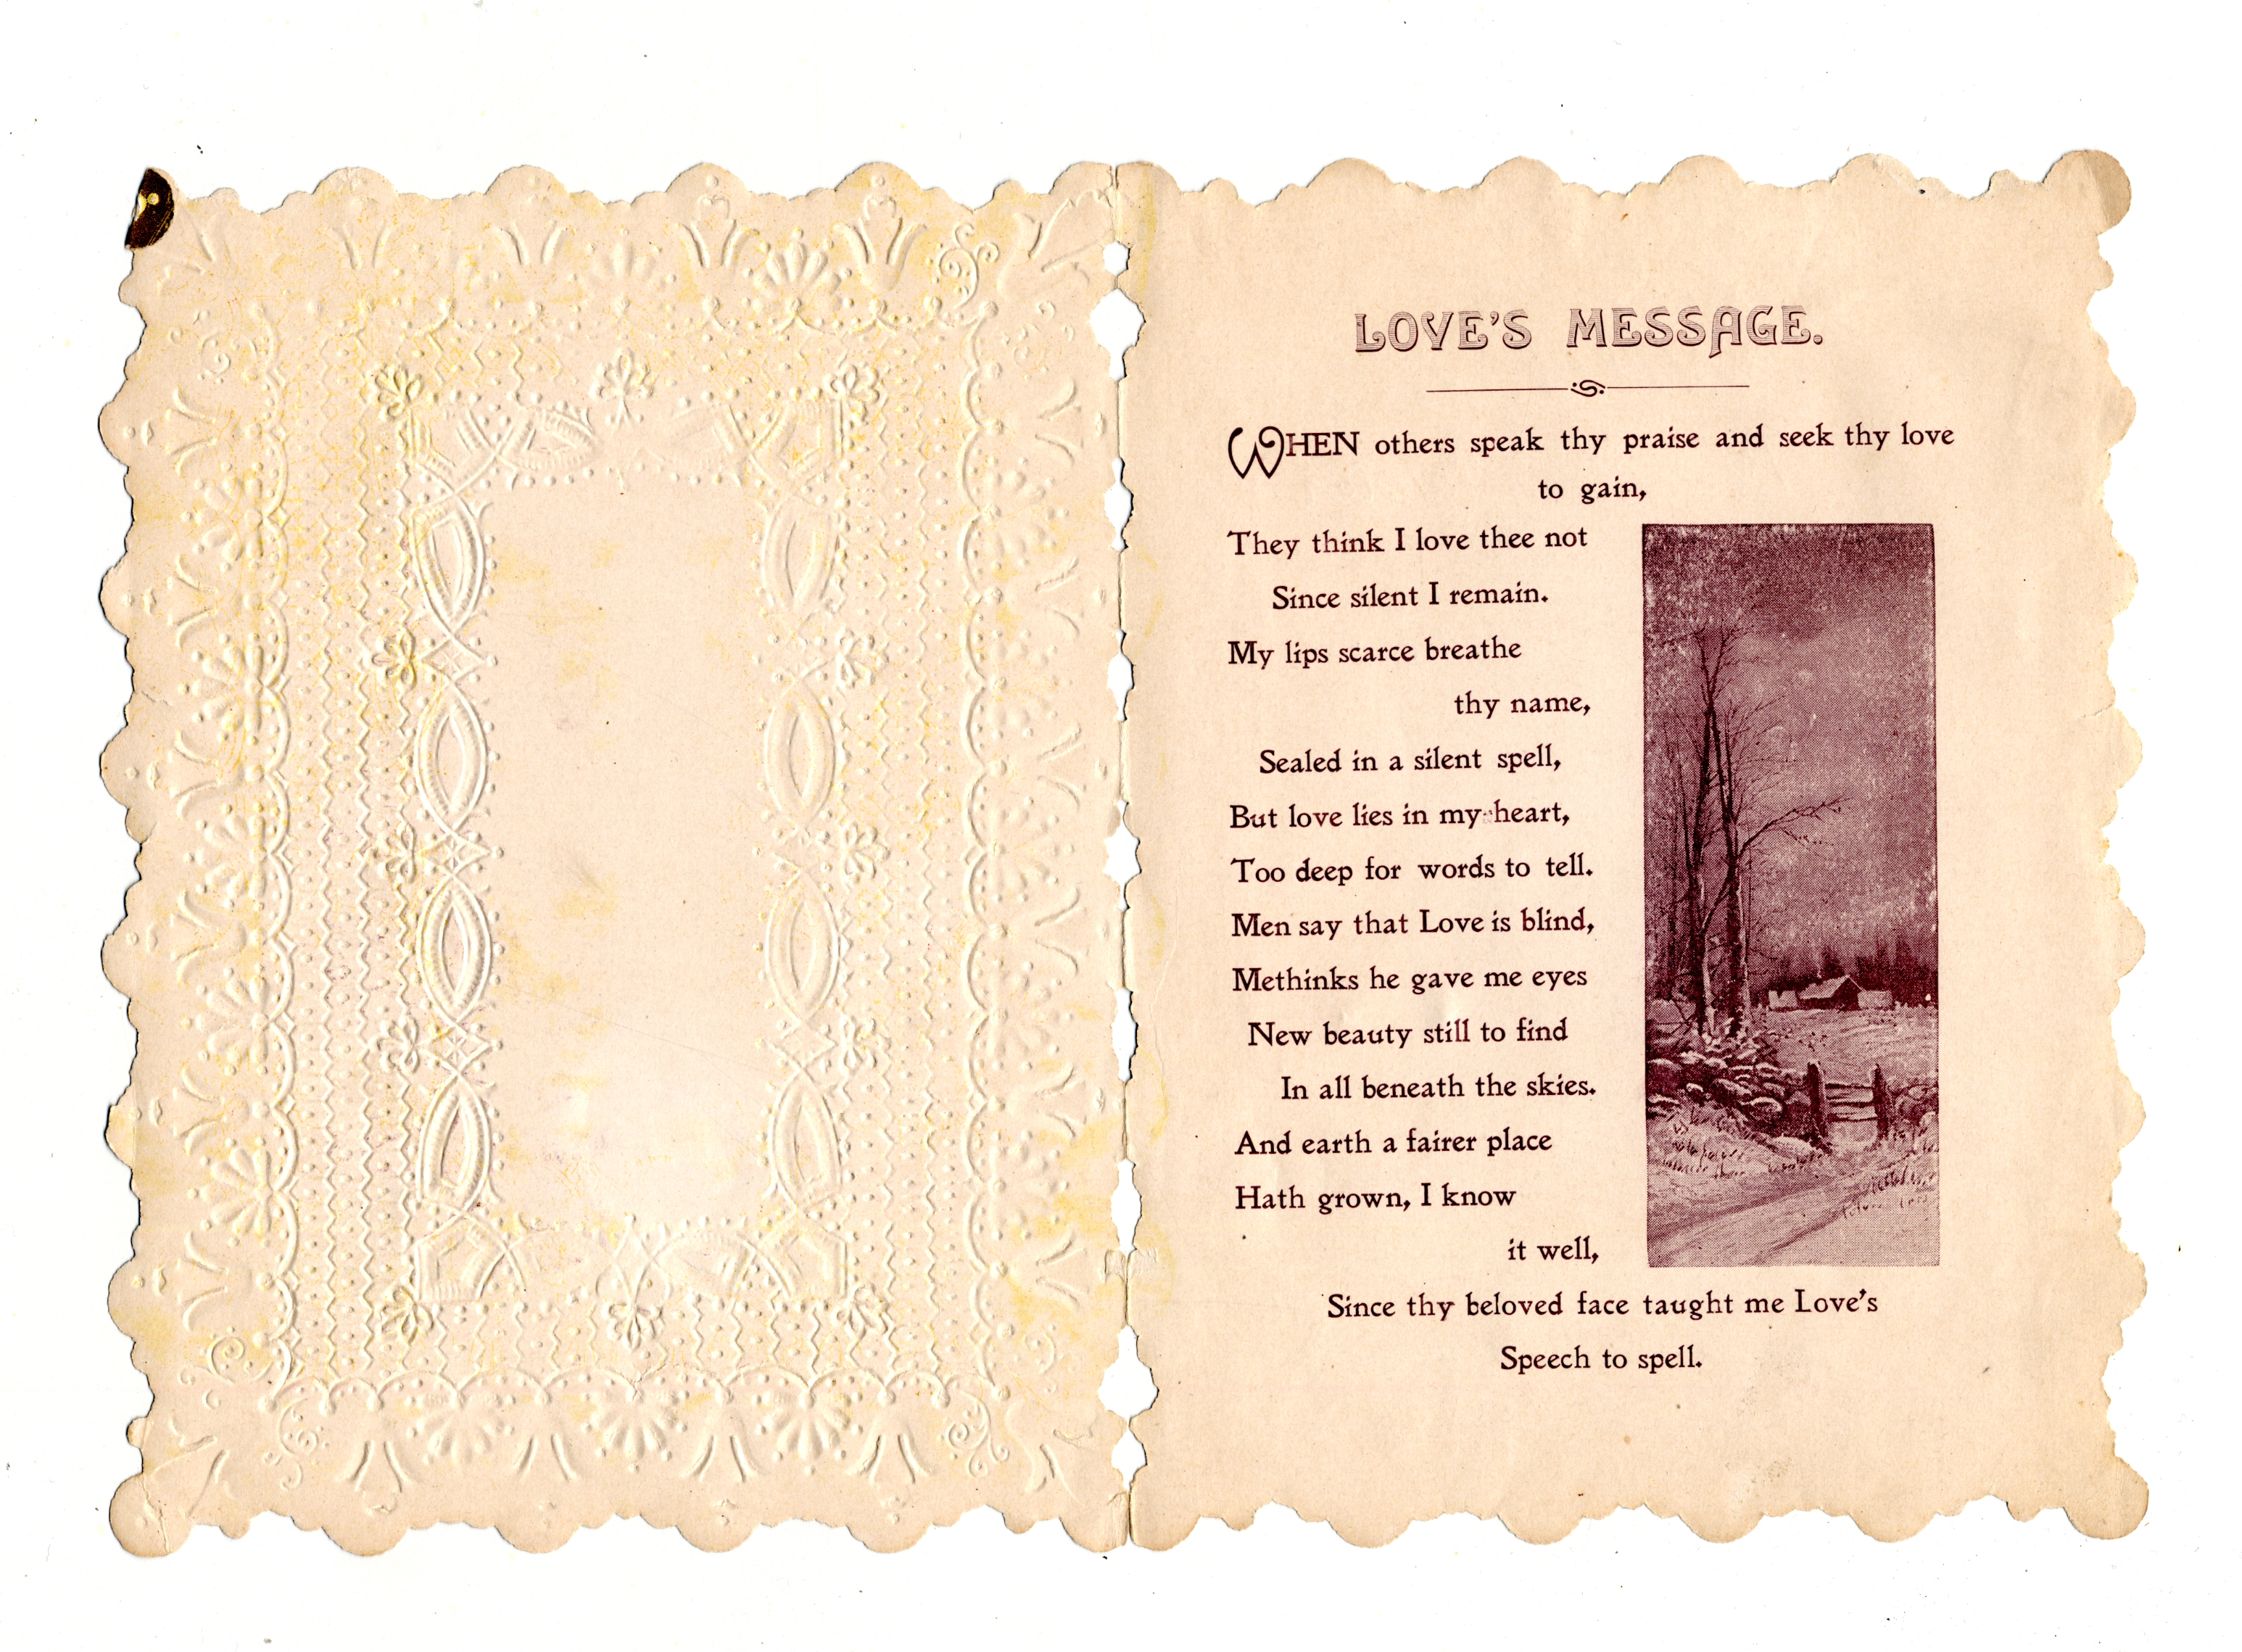 LOVE'S MESSAGE.
WHEN others speak thy praise and seek thy love
to gain,
They think I love thee not
Since silent I remain.
My lips scarce breathe
thy name,
Sealed in a silent spell,
But love lies in my heart,
Too deep for words to tell.
Men say that Love is blind,
Methinks he gave me eyes
New beauty still to find
In all beneath the skies.
And earth a fairer place
Hath grown, I know
it well,
Since thy beloved face taught me Love's
Speech to spell.